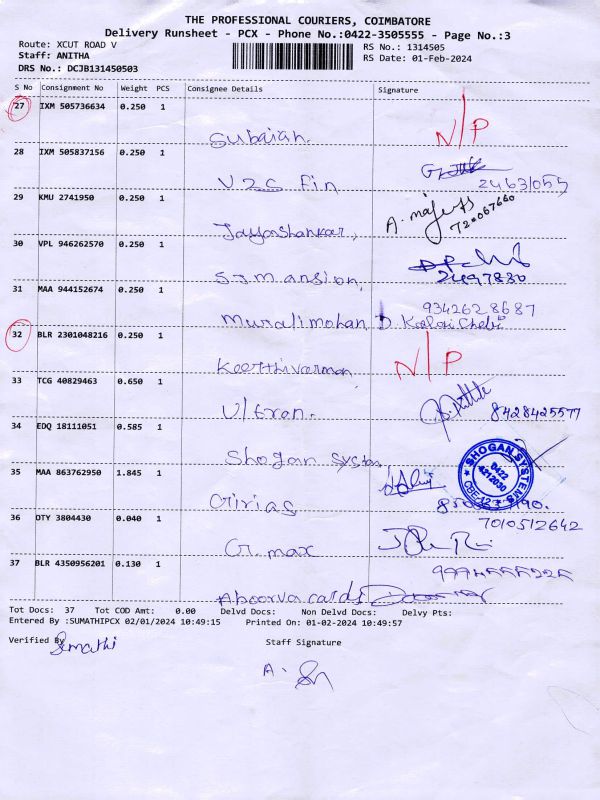 THE PROFESSIONAL COURIERS, COIMBATORE
Delivery Runsheet - PCX - Phone No.:0422-3505555 - Page No.:3
Route: XCUT ROAD V RS No.: 1314505
Staff: ANITHA RS Date: 01-Feb-2024
DRS No.: DCJB131450503
S No Consignment No Weight PCS Consignee Details Signature
27 IXM 505736634 0.250 1
Subaiah. N/P
28 IXM 505837156 0.250 1
V2S Fin 2463/055
29 KMU 2741950 0.250 1
Jayashankar, A.
30 VPL 946262570 0.250 1
S.J.mansion, 2497880
31 MAA 944152674 0.250 1
9342628687
Muralimohan D.
32 BLR 2301048216 0.250 1
Keerthivarman N/P
33 TCG 40829463 0.650 1
Ultron. 8428425577
34 EDQ 18111051 0.585 1
Shogan System SHOGAN SYSTEMS 0422 4212030 CBE-12
35 MAA 863762950 1.845 1
Girias
36 OTY 3804430 0.040 1
7010512642
G. max
37 BLR 4350956201 0.130 1
Aboorva cards
Tot Docs: 37 Tot COD Amt: 0.00 Delvd Docs: Non Delvd Docs: Delvy Pts:
Entered By :SUMATHIPCX 02/01/2024 10:49:15 Printed On: 01-02-2024 10:49:57
Verified By Sumathi Staff Signature
A.